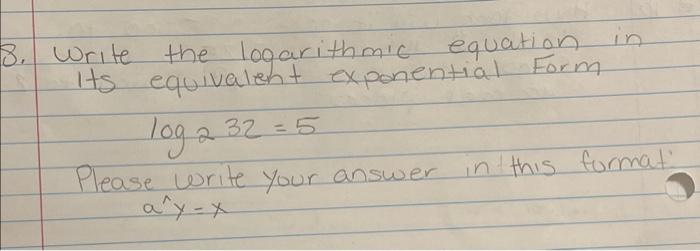 8. Write the logarithmic equation in
Its equivalent exponential Form
log₂ 32 = 5
Please write your answer in this format:
a^y = x